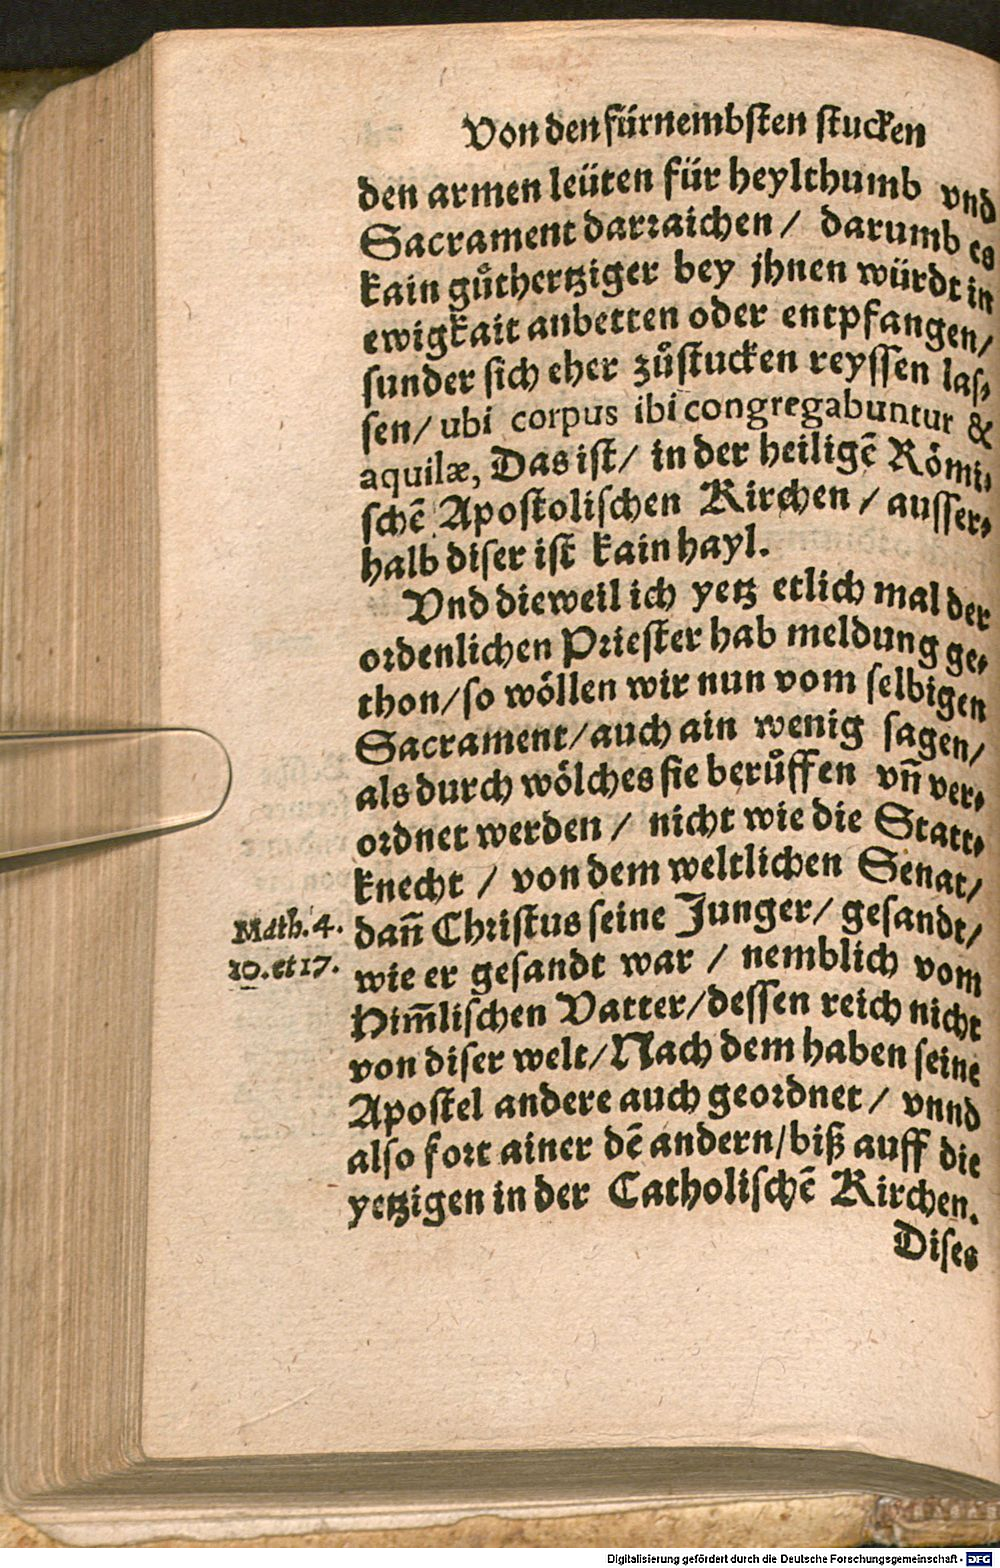 Von den fürnembsten stucken
den armen leüten für heylthumb vnd
Sacrament darraichen / darumb es
kain gůthertziger bey jhnen würdt in
ewigkait anbetten oder entpfangen/
sunder sich eher zůstucken reyssen las-
sen/ ubi corpus ibi congregabuntur &
aquilæ, Das ist/ in der heiligē Römi-
schē Apostolischen Kirchen / ausser-
halb diser ist kain hayl.
Vnd dieweil ich yetz etlich mal der
ordenlichen Priester hab meldung ge-
thon/so wöllen wir nun vom selbigen
Sacrament/auch ain wenig sagen/
als durch wölches sie berůffen vñ ver-
ordnet werden / nicht wie die Statt-
knecht / von dem weltlichen Senat/
Math. 4. dañ Christus seine Junger/ gesandt/
10. et 17. wie er gesandt war / nemblich vom
Him̄lischen Vatter/dessen reich nicht
von diser welt/Nach dem haben seine
Apostel andere auch geordnet / vnnd
also fort ainer dē andern/biß auff die
yetzigen in der Catholischē Kirchen.
Dises
Digitalisierung gefördert durch die Deutsche Forschungsgemeinschaft - DFG